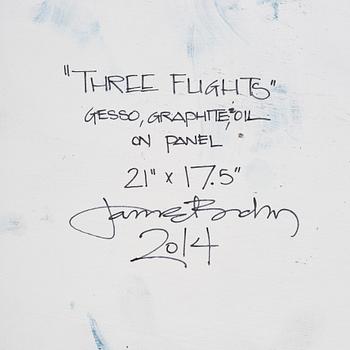 "THREE FLIGHTS"
GESSO, GRAPHITE, & OIL
ON PANEL
21" x 17.5"
James
2014